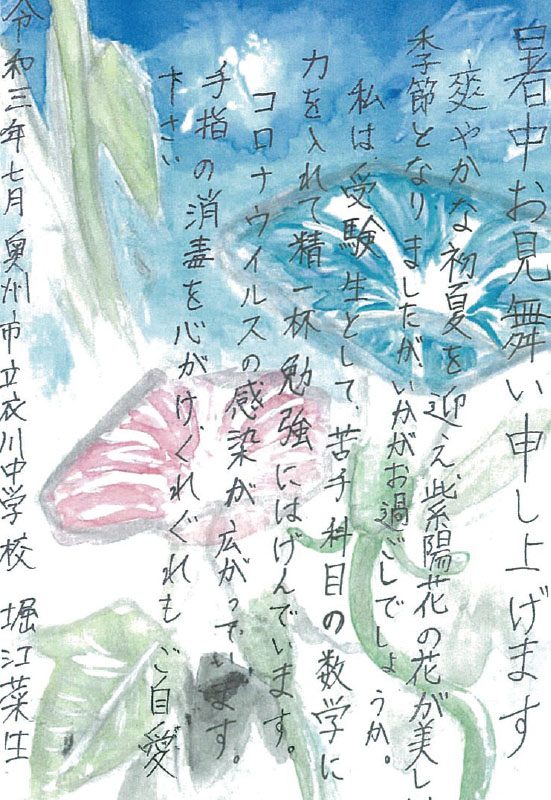 暑中お見舞い申し上げます
爽やかな初夏を迎え、紫陽花の花が美しい
季節となりましたが、いかがお過ごしでしょうか。
私は受験生として、苦手科目の数学に
力を入れて精一杯勉強にはげんでいます。
コロナウイルスの感染が広がっています。
手指の消毒を心がけ、くれぐれもご自愛
下さい
令和三年七月 奥州市立衣川中学校 堀江菜生